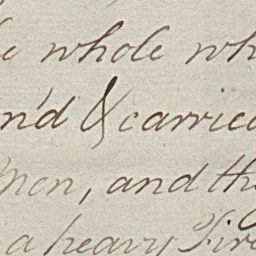 whole wh
n'd & carried
Men, and th
a heavy Fire